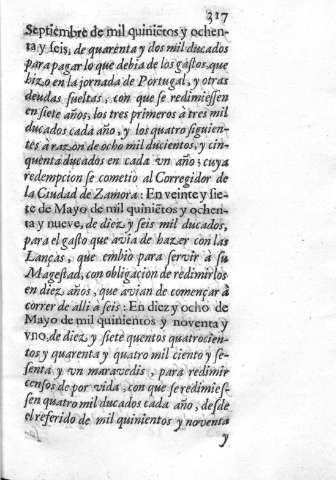 317
Septiembre de mil quiniẽtos y ochen-
ta y seis, de quarenta y dos mil ducados
para pagar lo que debia de los gastos que
hizo en la jornada de Portugal, y otras
deudas sueltas, con que se redimiessen
en siete años, los tres primeros à tres mil
ducados cada año, y los quatro siguien-
tes à razon de ocho mil ducientos, y cin-
quenta ducados en cada vn año; cuya
redempcion se cometiò al Corregidor de
la Ciudad de Zamora: En veinte y sie-
te de Mayo de mil quiniẽtos y ochen-
ta y nueve, de diez y seis mil ducados,
para el gasto que avia de hazer con las
Lanças, que embio para servir à su
Magestad, con obligacion de redimirlos
en diez años, que avian de començar à
correr de alli à seis: En diez y ocho de
Mayo de mil quinientos y noventa y
vno, de diez y siete quentos quatrocien-
tos y quarenta y quatro mil ciento y se-
senta y vn maravedis, para redimir
censos de por vida, con que se redimies-
sen quatro mil ducados cada año, desde
el referido de mil quinientos y noventa
y